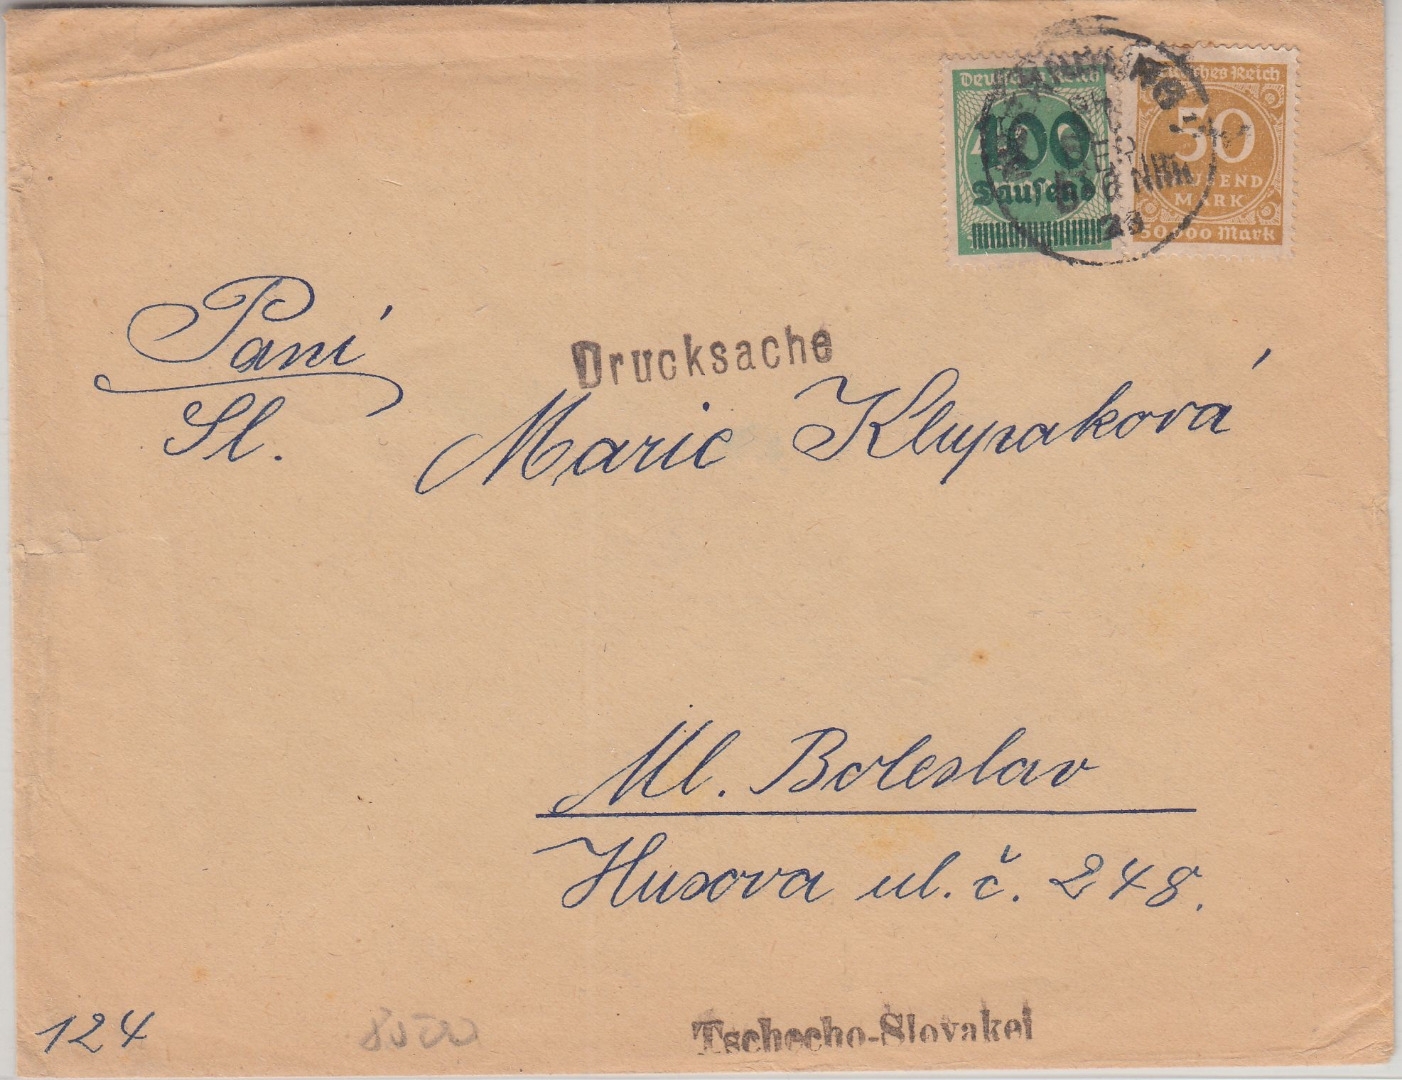 Deutsches Reich
100
Tausend
Deutsches Reich
50
TAUSEND
MARK
50000 Mark
23
Drucksache
Paní
Sl. Marie
Ml. Boleslav
Husova ul. č. 248.
124
Tschecho-Slovakei